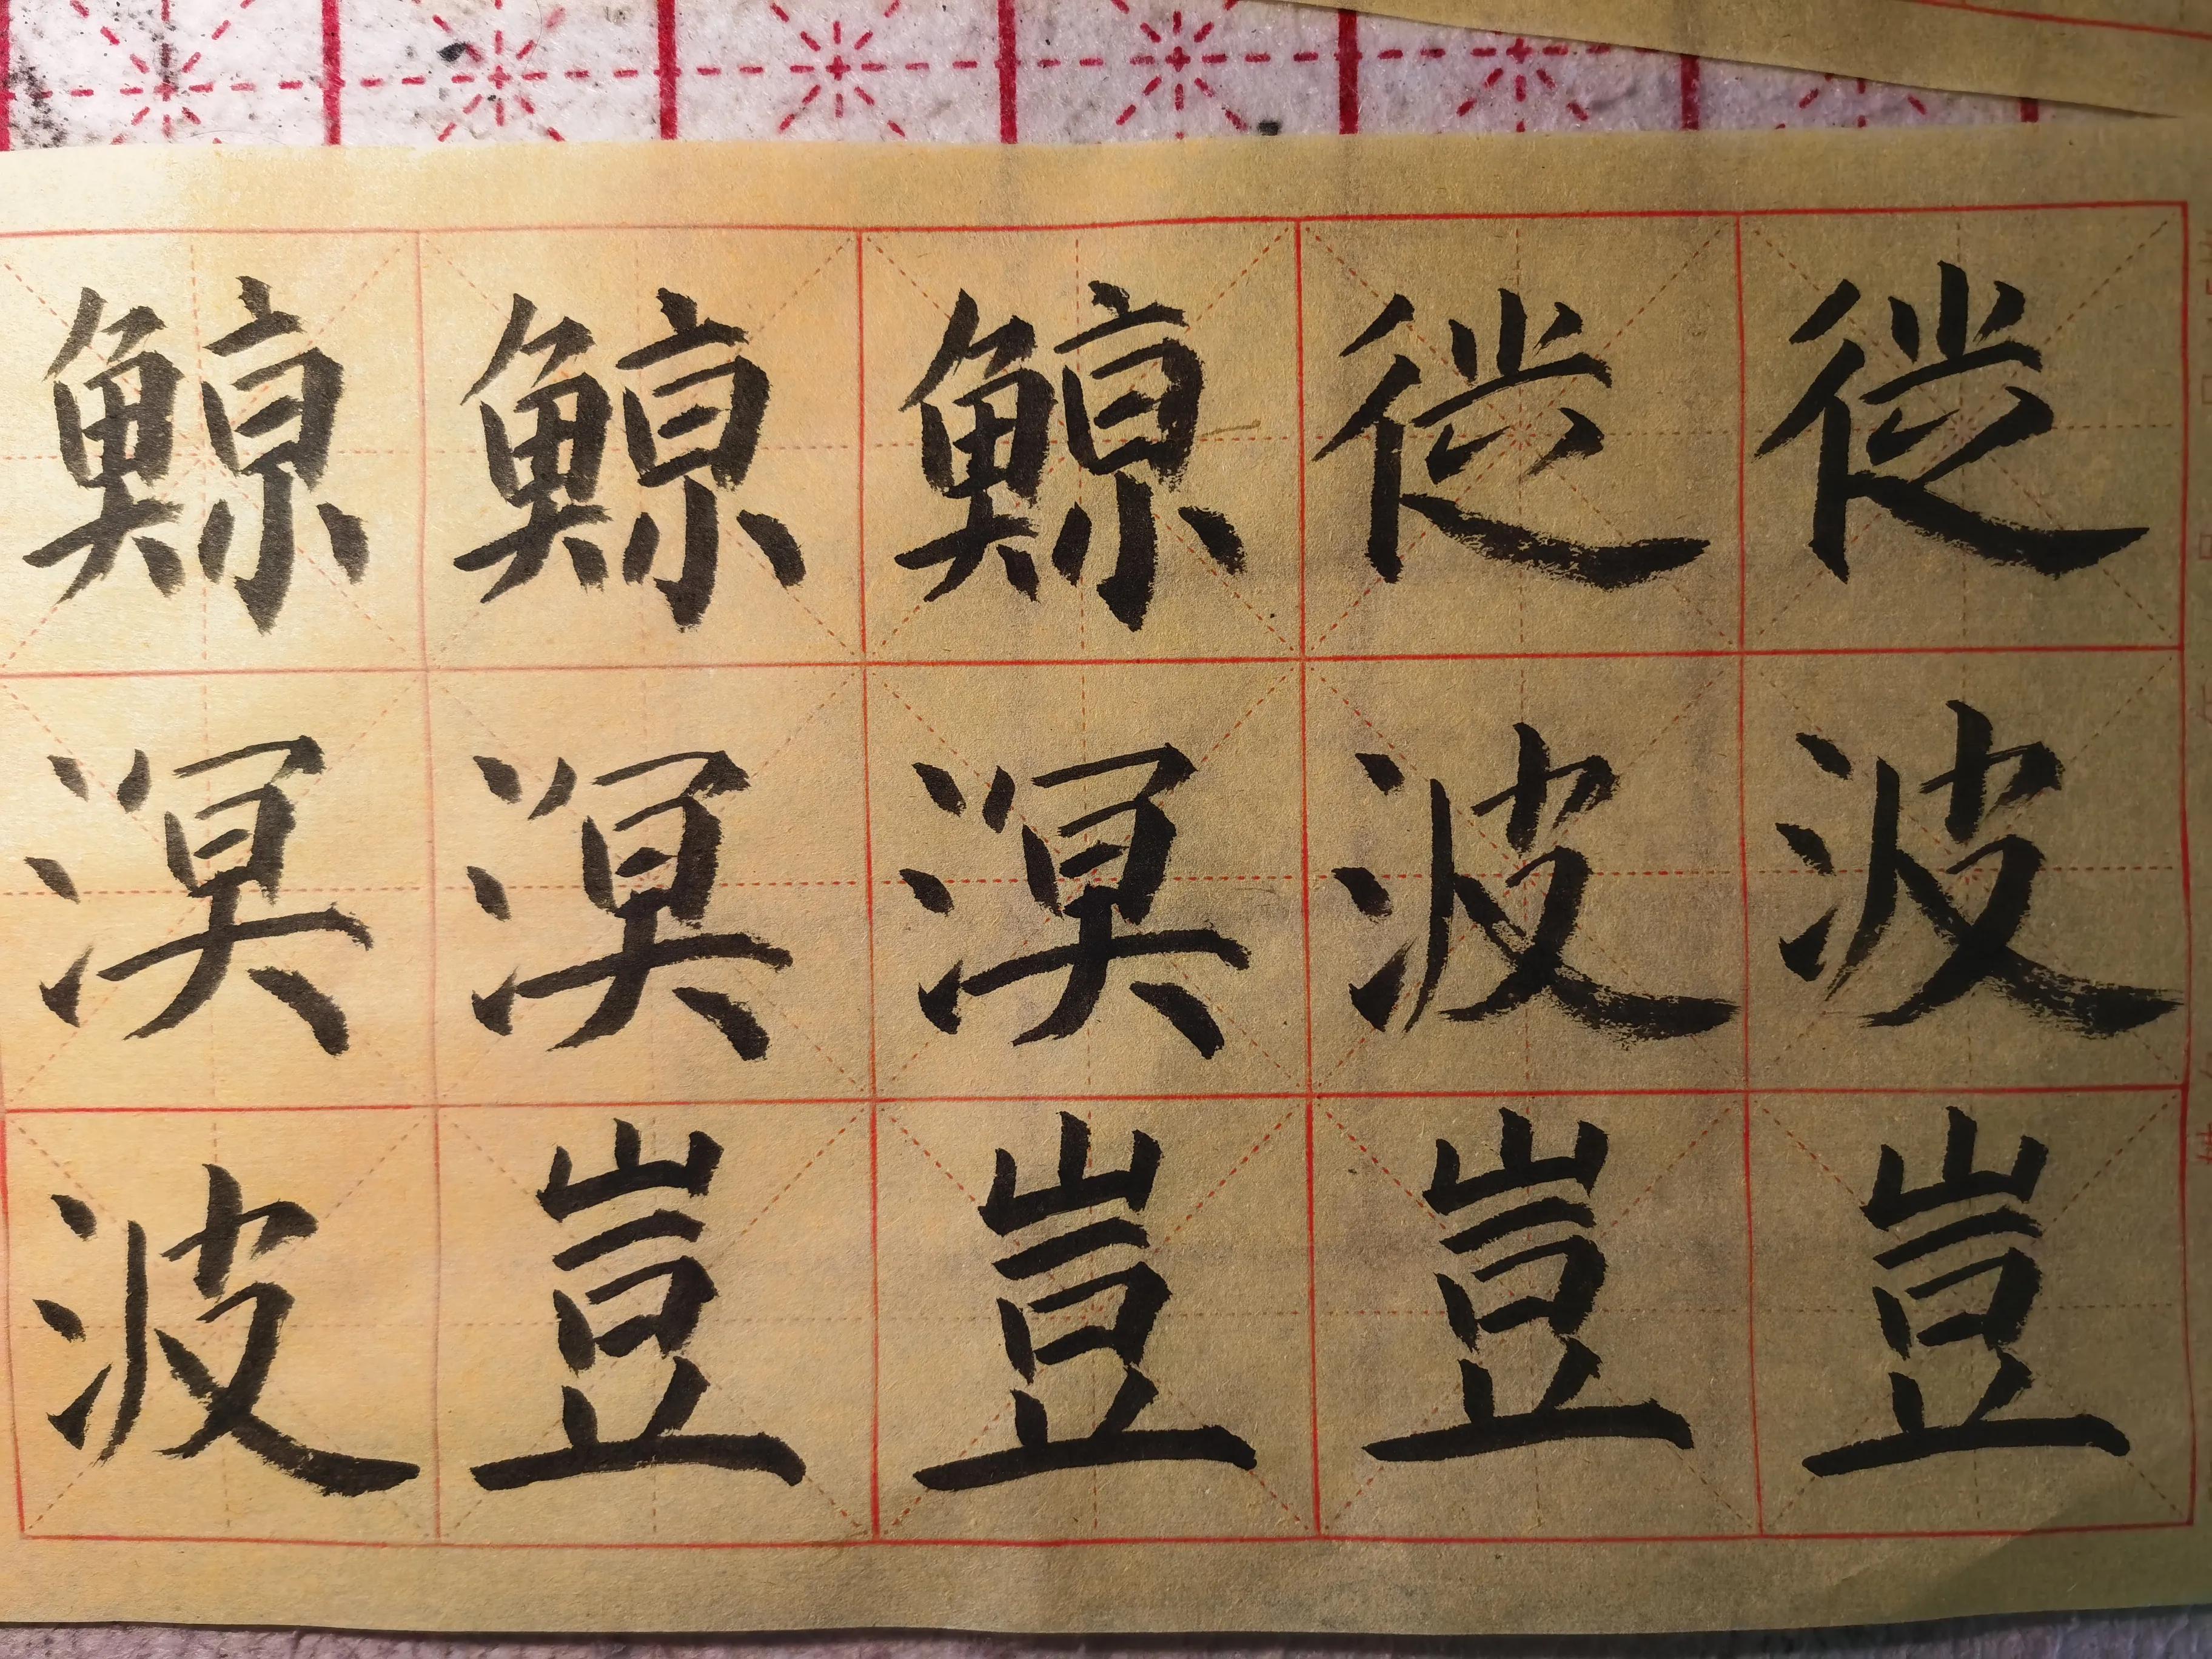 鯨鯨鯨徙徙
溟溟溟波波
波豈豈豈豈